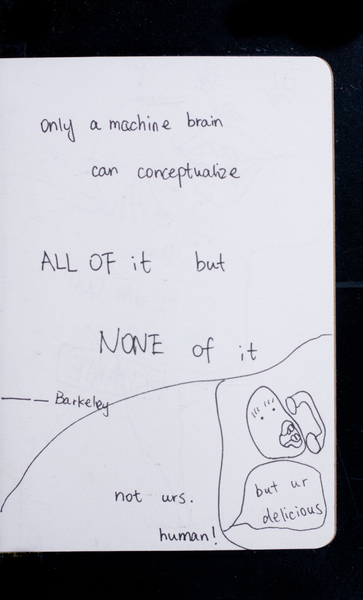 only a machine brain
can conceptualize
ALL OF it but
NONE of it
—— Barkeley
not urs.
human!
but ur
delicious